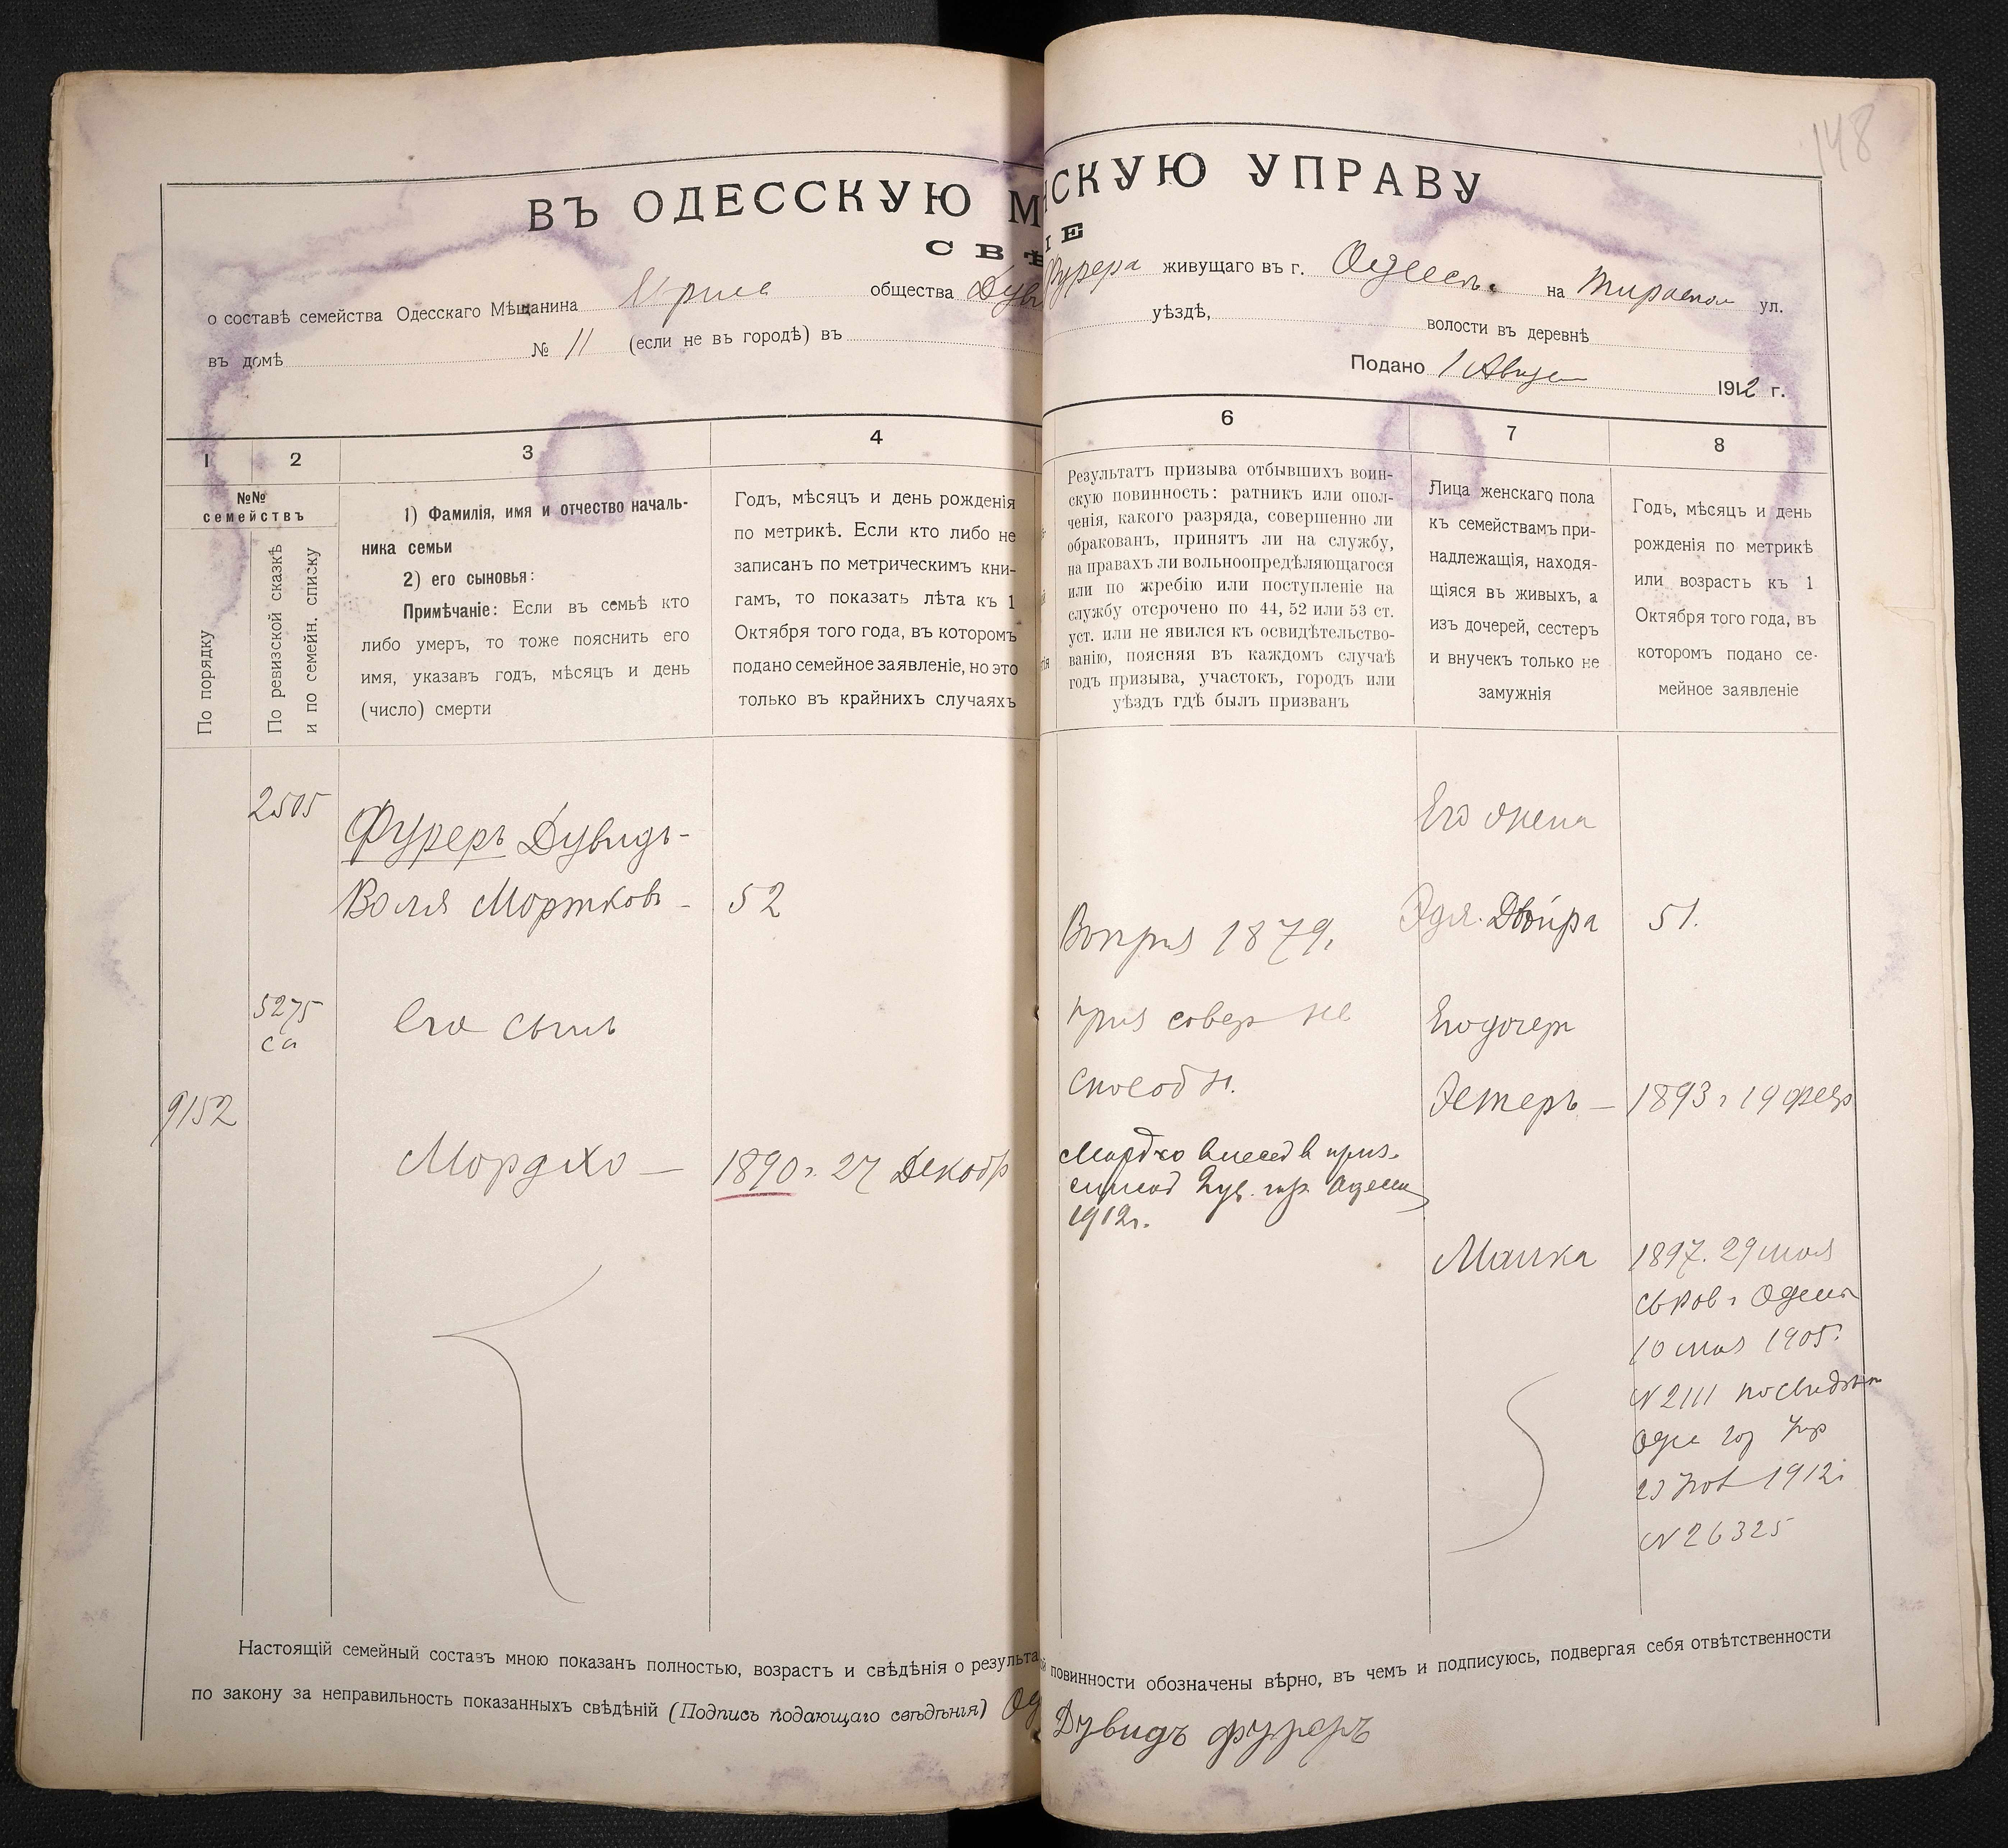 148
ВЪ ОДЕССКУЮ М СКУЮ УПРАВУ
СВѢ ІЕ
о составѣ семейства Одесскаго Мѣщанина общества Дув Фурера живущаго въ г. Одессѣ на ул.
въ домѣ № 11 (если не въ городѣ) въ уѣздѣ, волости въ деревнѣ
Подано 1 Август 1912 г.
1 2 3 4 6 7 8
№№
семействъ
По порядку
По ревизской сказкѣ
и по семейн. списку
1) Фамилія, имя и отчество началь-
ника семьи
2) его сыновья:
Примѣчаніе: Если въ семьѣ кто
либо умеръ, то тоже пояснить его
имя, указавъ годъ, мѣсяцъ и день
(число) смерти
Годъ, мѣсяцъ и день рожденія
по метрикѣ. Если кто либо не
записанъ по метрическимъ кни-
гамъ, то показать лѣта къ 1
Октября того года, въ которомъ
подано семейное заявленіе, но это
только въ крайнихъ случаяхъ
Результатъ призыва отбывшихъ воин-
скую повинность: ратникъ или опол-
ченія, какого разряда, совершенно ли
обракованъ, принятъ ли на службу,
на правахъ ли вольноопредѣляющагося
или по жребію или поступленіе на
службу отсрочено по 44, 52 или 53 ст.
уст. или не явился къ освидѣтельство-
ванію, поясняя въ каждомъ случаѣ
годъ призыва, участокъ, городъ или
уѣздъ гдѣ былъ призванъ
Лица женскаго пола
къ семействамъ при-
надлежащія, находя-
щіяся въ живыхъ, а
изъ дочерей, сестеръ
и внучекъ только не
замужнія
Годъ, мѣсяцъ и день
рожденія по метрикѣ
или возрастъ къ 1
Октября того года, въ
которомъ подано се-
мейное заявленіе
2505
Фуреръ Дувидъ-
Воля Мортковъ - 52
Его жена
Эдя. Двойра 51.
1879.
5275
са
Его сынъ
приз совер не
способн.
Его дочери
9152
Мордхо — 1890 г. 27 Декабр
Эстеръ — 1893 г 19 февр
Мордхо в приз.
1912г.
Малка 1897. 29 мая
Одессы
10 мая 1905г
N 2111 по свидѣт
Оде гор Упр
23 1912г
N 26325
Настоящій семейный составъ мною показанъ полностью, возрастъ и свѣдѣнія о результа й повинности обозначены вѣрно, въ чемъ и подписуюсь, подвергая себя отвѣтственности
по закону за неправильность показанныхъ свѣдѣній (Подпись подающаго свѣдѣнія) Од Дувидъ фуреръ